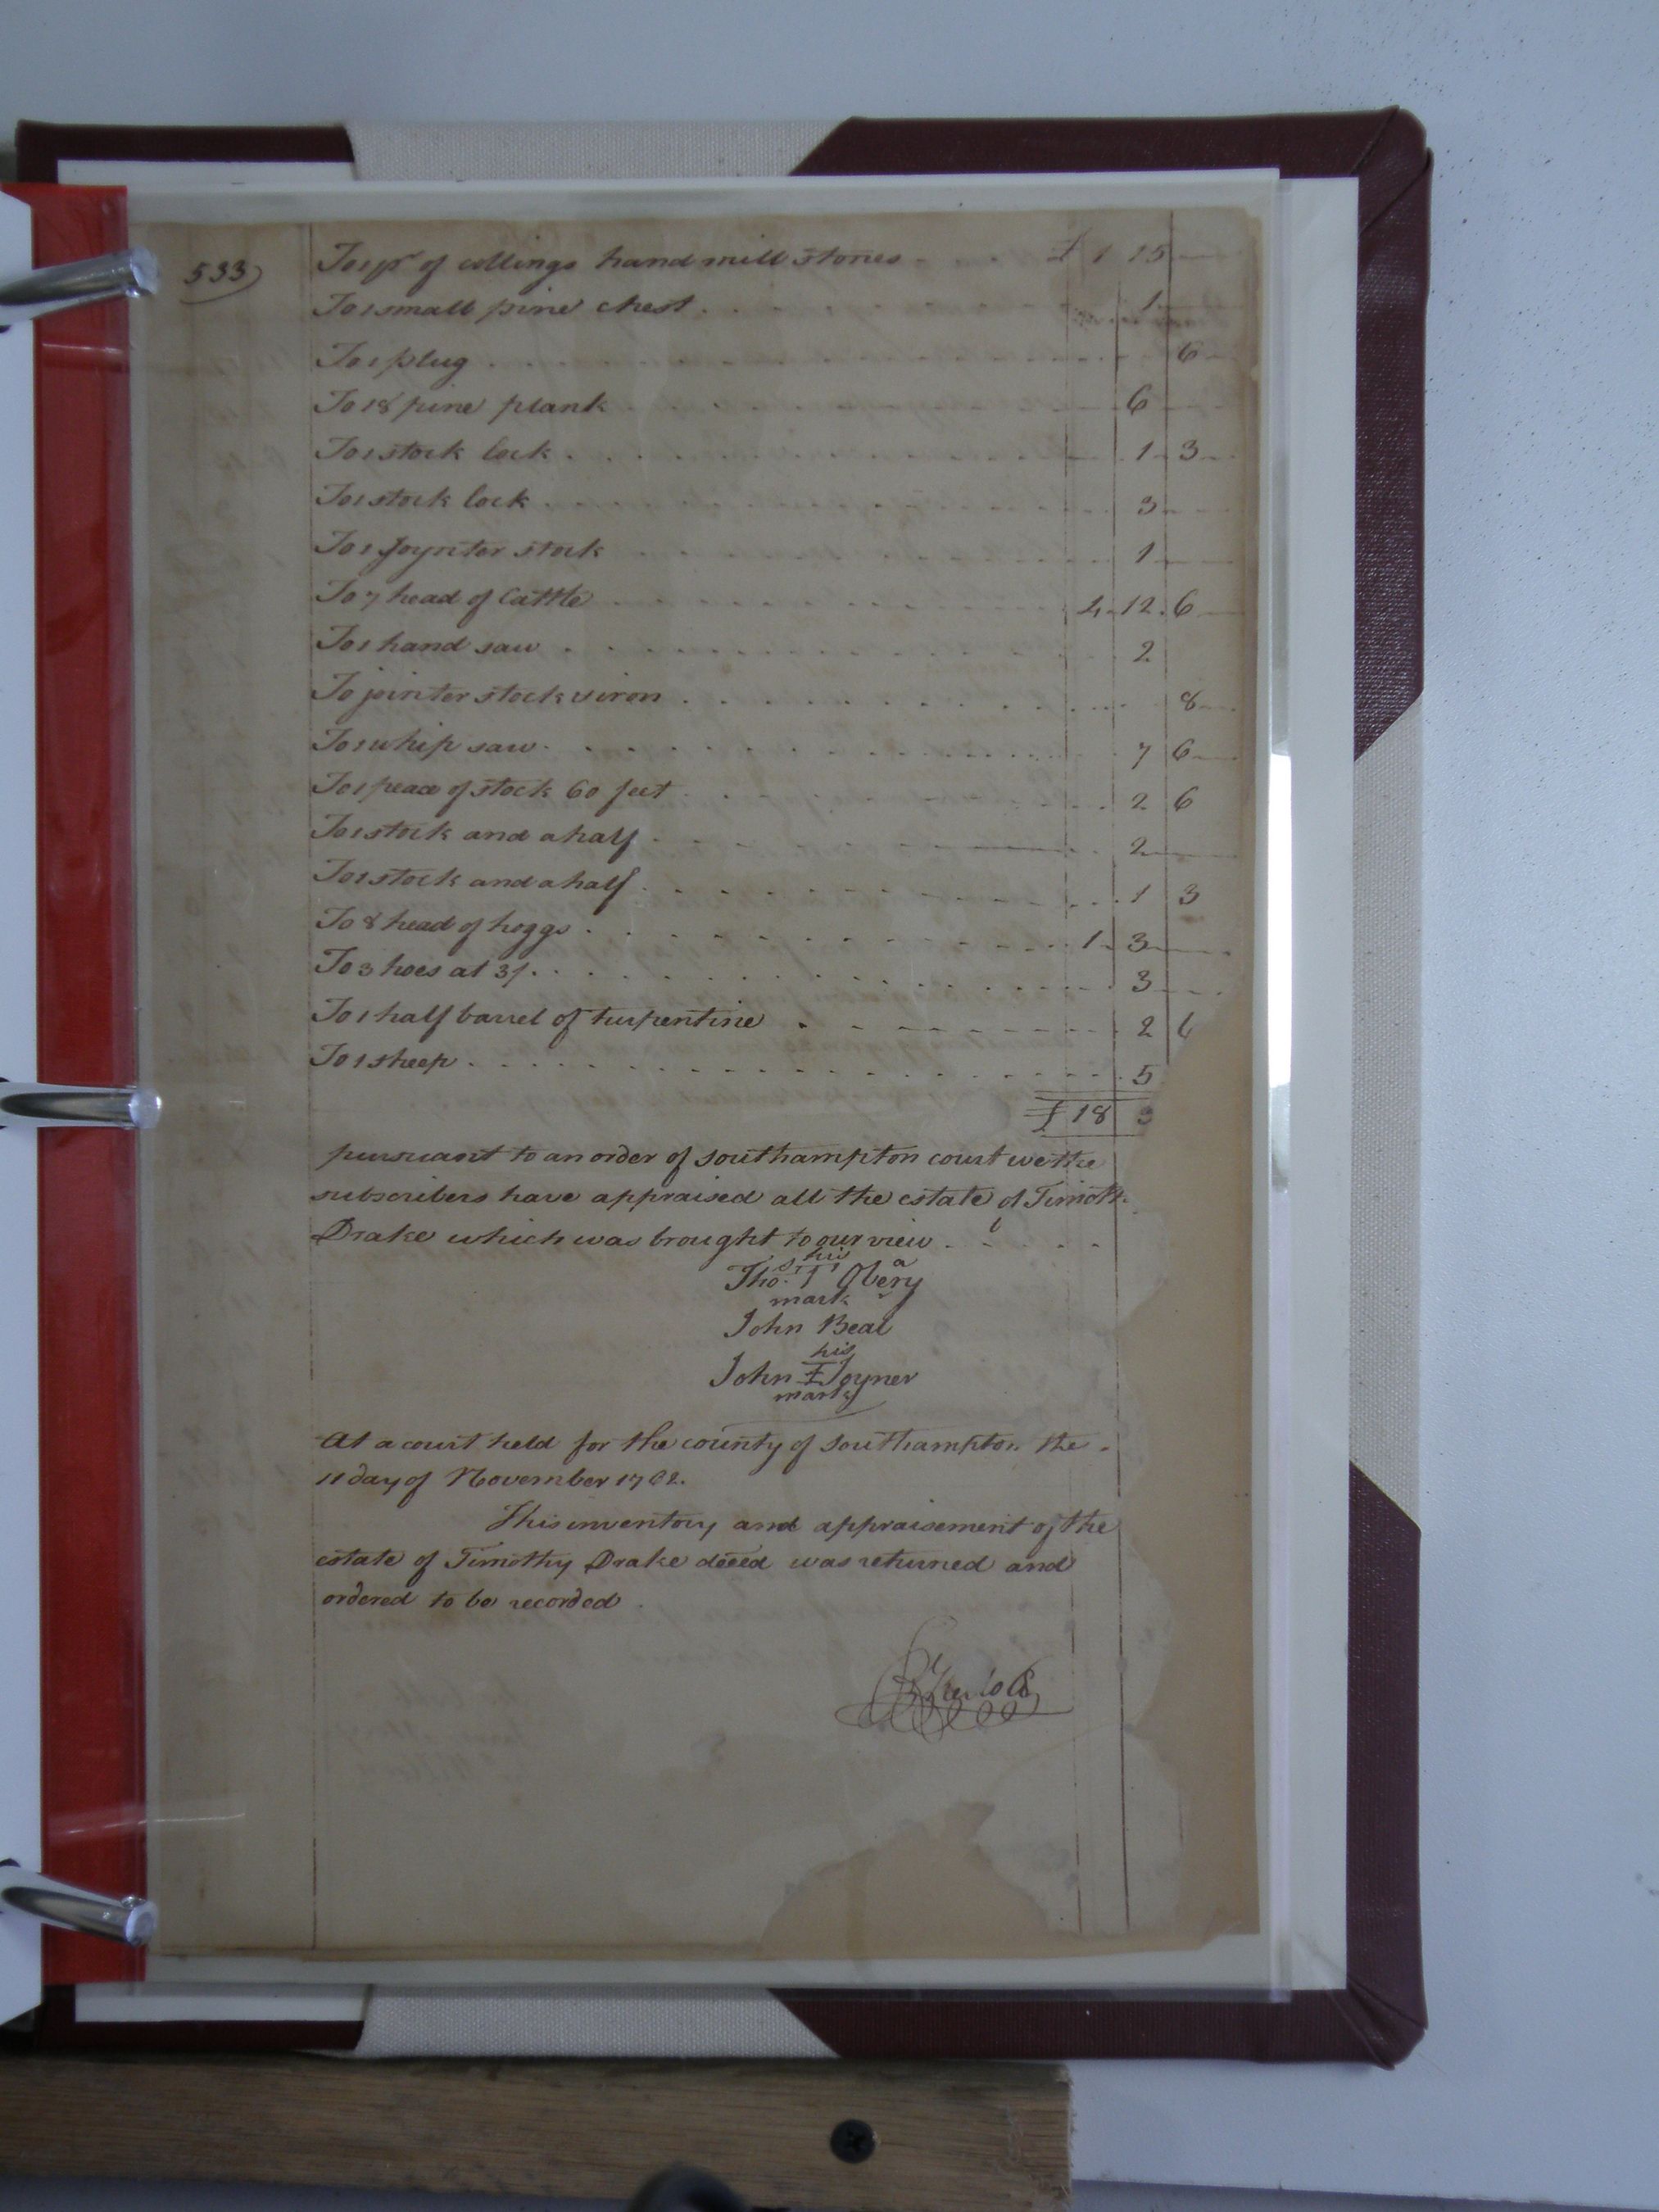 533)
To 1 pr of collings hand mill stones - - - £ 1 15
To 1 small pine chest - - - 1
To 1 plug - - - 6
To 18 pine plank - - - 6
To 1 stock lock - - - 1 3
To 1 stock lock - - - 3
To 1 Joynter stock - - - 1
To 7 head of Cattle - - - 4 12 6
To 1 hand saw - - - 2
To jointer stock & iron - - - 8
To 1 whip saw - - - 7 6
To 1 peace of stock 60 feet - - - 2 6
To 1 stock and a half - - - 2
To 1 stock and a half - - - 1 3
To 8 head of hoggs - - - 1 3
To 3 hoes at 3/ - - - 3
To 1 half barrel of turpentine - - - 2 6
To 1 sheep - - - 5
£ 18 3
pursuant to an order of southampton court we the
subscribers have appraised all the estate of Timoth
Drake which was brought to our view
his
Tho.s T Obery
mark
John Beal
his
John I Joyner
mark
At a court held for the county of Southampton the
11 day of November 1762.
This inventory and appraisement of the
estate of Timothy Drake deced was returned and
ordered to be recorded